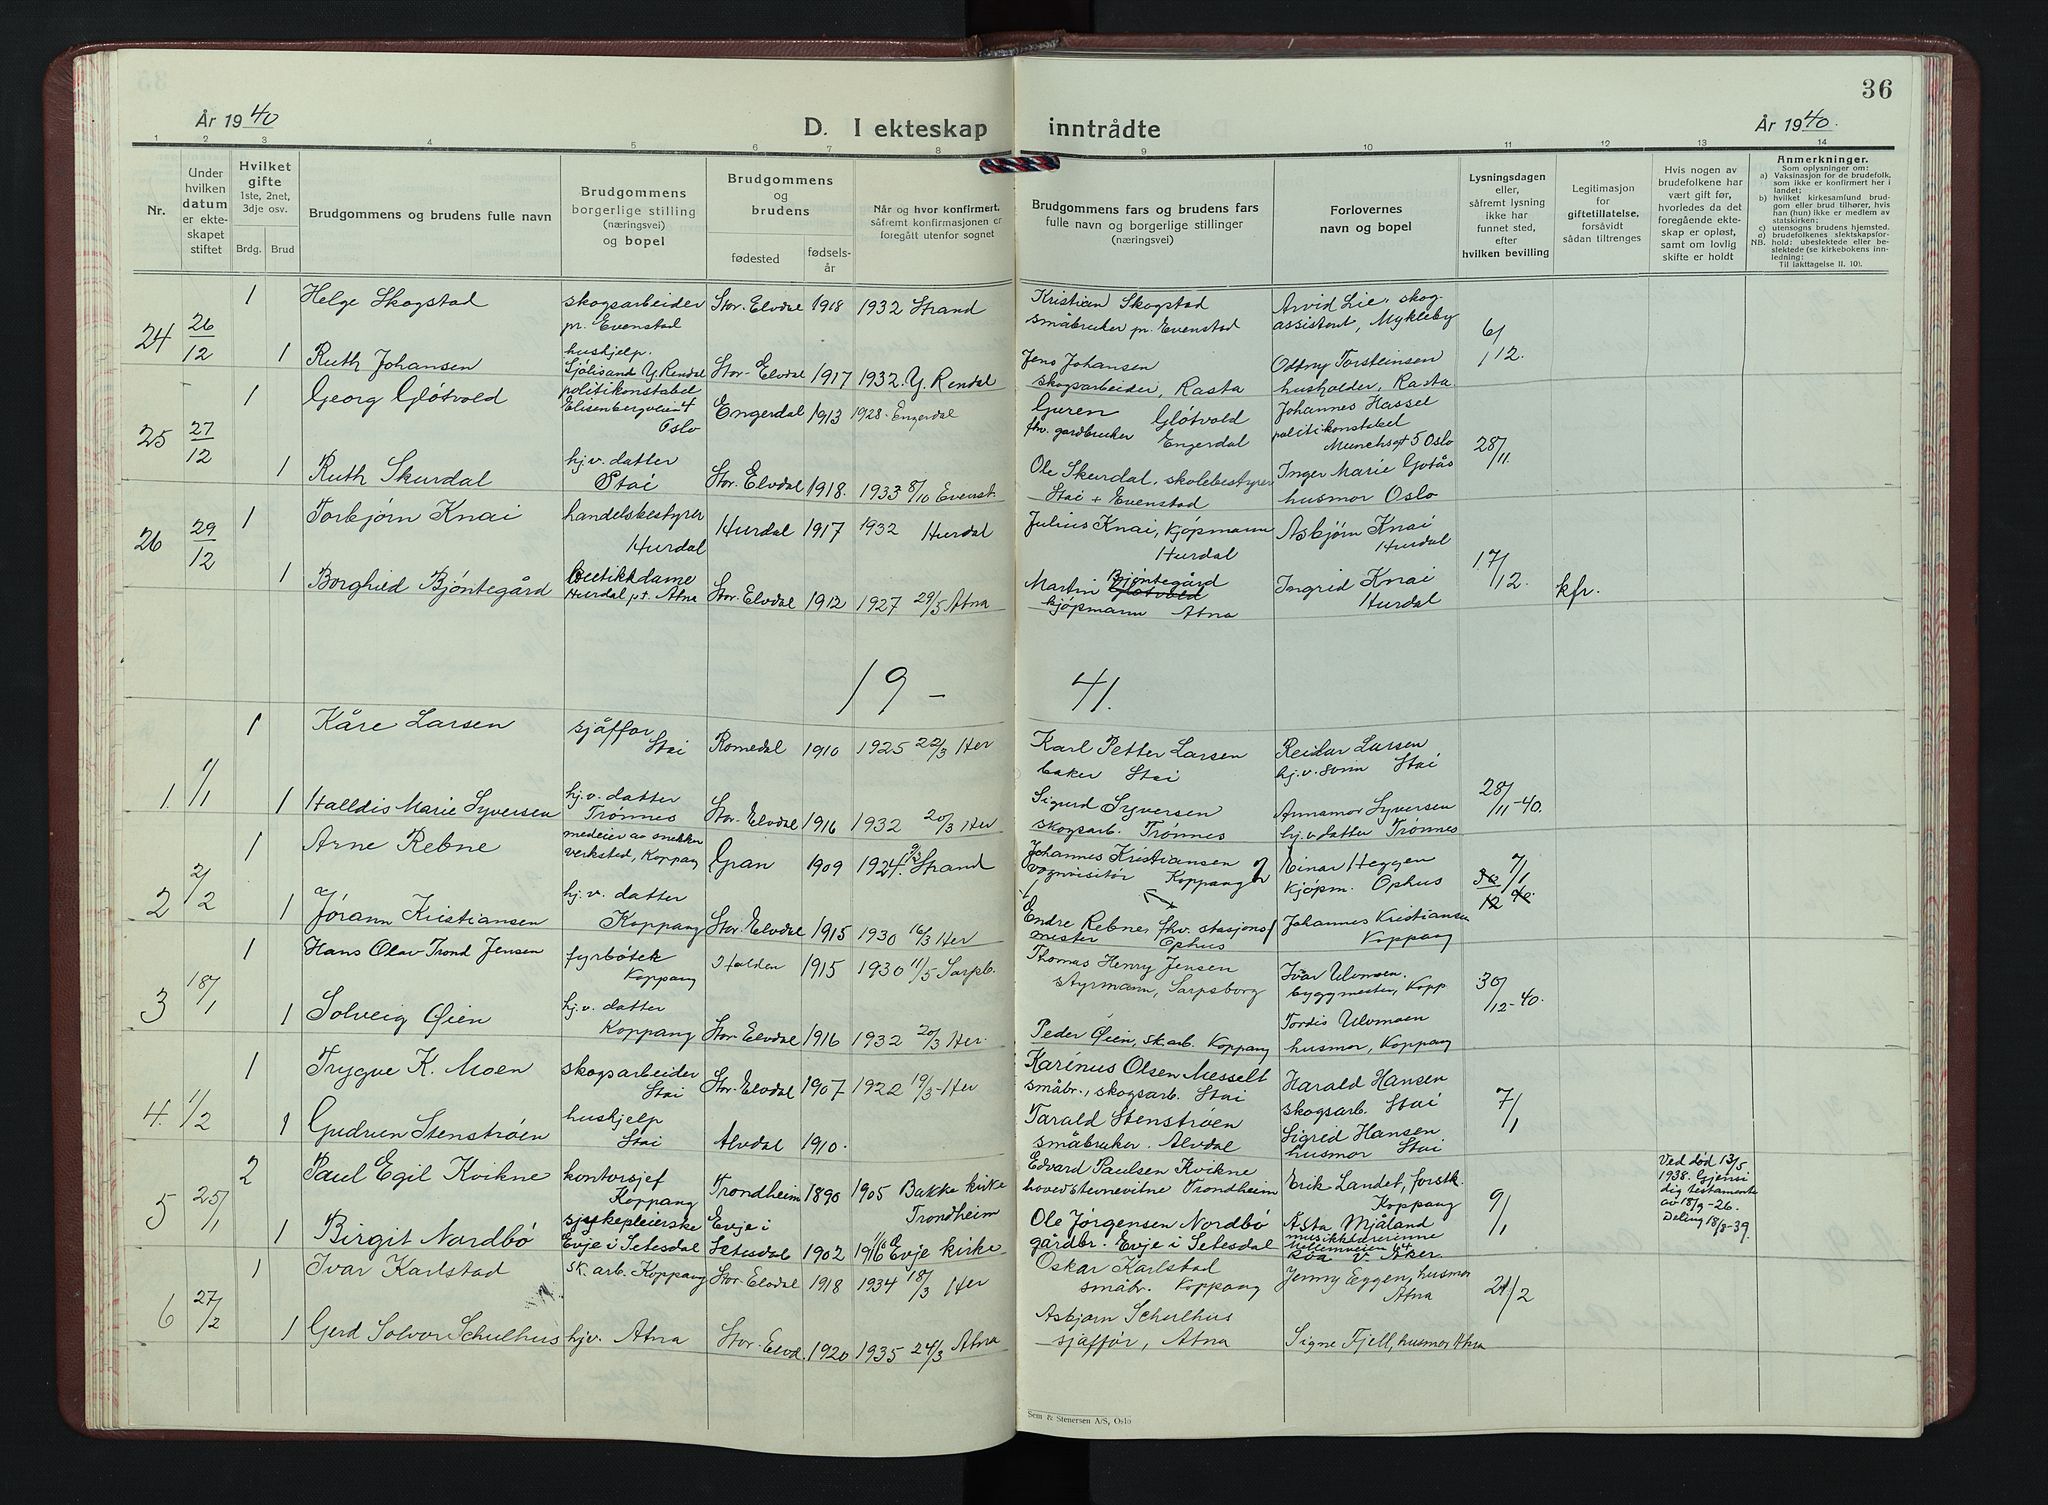 36
År 1940
D. I ekteskap inntrådte
År 1940.
1 2 3 4 5 6 7 8 9 10 11 12 13 14
Nr.
Under hvilken datum er ekteskapet stiftet
Hvilket gifte
1ste, 2net, 3dje osv.
Brdg. Brud
Brudgommens og brudens fulle navn
Brudgommens borgerlige stilling (næringsvei) og bopel
Brudgommens og brudens
fødested
fødselsår
Når og hvor konfirmert, såfremt konfirmasjonen er foregått utenfor sognet
Brudgommens fars og brudens fars fulle navn og borgerlige stillinger (næringsvei)
Forlovernes navn og bopel
Lysningsdagen eller, såfremt lysning ikke har funnet sted, efter hvilken bevilling
Legitimasjon for giftetillatelse, forsåvidt sådan tiltrenges
Hvis nogen av brudefolkene har vært gift før, hvorledes da det foregående ekteskap er opløst, samt om lovlig skifte er holdt
Anmerkninger.
Som oplysninger om:
a) Vaksinasjon for de brudefolk, som ikke er konfirmert her i landet;
b) hvilket kirkesamfund brudgom eller brud tilhører, hvis han (hun) ikke er medlem av statskirken;
c) utensogns brudens hjemsted.
d) brudefolkenes slektskapsforhold: ubeslektede eller beslektede (se kirkebokens innledning:
NB.
Til iakttagelse II. 10).
24 26/12 1 Helge Skogstad skogsarbeider pr. Evenstad Stor-Elvdal 1918 1932 Strand Kristian Skogstad småbruker pr. Evenstad Arvid Lie, skogassistent, Mykleby 6/12.
1 Ruth Johansen hushjelp. Sjølisand Y. Rendal Stor-Elvdal 1917 1932. Y. Rendal Jens Johansen skogsarbeider, Rasta Oddny Torsteinsen husholder, Rasta
25 27/12 1 Georg Gløtvold politikonstabel Elisenbergveien 4 Oslo Engerdal 1913 1928 - Engerdal Guren Gløtvold fhv. gardbruker Engerdal Johannes Hassel politikonstabel Munchsgt 5 Oslo 28/11.
1 Ruth Skurdal hj.v. datter Stai Stor-Elvdal 1918. 1933 8/10 Evenst. Ole Skurdal, skolebestyrer Stai + Evenstad Inger Marie Gotås husmor Oslo
26 29/12 1 Torbjørn Knai handelsbestyrer Hurdal Hurdal 1917 1932 Hurdal Julius Knai, kjøpmann Hurdal Asbjørn Knai Hurdal 17/12. kfr.
1 Borghild Bjøntegård butikkdame Hurdal pt. Atna Stor-Elvdal 1912 1927 29/5 Atna Martin Bjøntegård Gløtvold kjøpmann Atna Ingrid Knai Hurdal
19 - 41.
1. 1/1 1 Kåre Larsen sjåffør Stai Romedal 1910 1925 22/3 Her Karl Petter Larsen baker Stai Reidar Larsen hj.v. sønn Stai 28/11-40.
1 Halldis Marie Syversen hj.v. datter Trønnes Stor-Elvdal 1916 1932 20/3 Her Sigurd Syversen skogsarb. Trønnes Annamor Syversen hj.v datter Trønnes
2 2/2 1 Arne Rebne medeier av snekkerverksted, Koppang Gran 1909 1924. Strand Johannes Kristiansen vognvisitør Koppang Einar Heggen kjøpm. Ophus 30/12 40. 7/1
1 Jørann Kristiansen hj.v. datter Koppang Stor-Elvdal 1915 1930 16/3 Her Endre Rebne, fhv. stasjonsmester Ophus Johannes Kristiansen Koppang
3 18/1 1 Hans Olav Trond Jensen fyrbøter Koppang Halden 1915 1930 11/5 Sarpb. Thomas Henry Jensen styrmann, Sarpsborg Ivar Ulvmoen. byggmester, Kopp 30/12-40.
1 Solveig Øien hj.v. datter Koppang Stor-Elvdal 1916 1932 20/3 Her. Peder Øien, sk.arb. Koppang Tordis Ulvmoen husmor, Koppang
4. 1/2 1 Trygve K. Moen skogsarbeider Stai Stor-Elvdal 1907 1922 19/3-Her Karinus Olsen Messelt småbr., skogsarb. Stai Harald Hansen skogsarb. Stai 7/1
1 Gudrun Stenstrøen hushjelp Stai Alvdal 1910. Tarald Stenstrøen småbruker. Alvdal Sigrid Hansen husmor Stai
5 25/1 2 Paul Egil Kvikne kontorsjef Koppang Trondheim 1890 1905 Bakke kirke Trondheim Edvard Paulsen Kvikne hovedstevnevitne Trondheim Erik Landet, forstk. Koppang 9/1 Ved død 13/5 1938. Gjensidig testamente av 18/9-26. Deling 18/8-39.
1 Birgit Nordbø sykepleierske Evje i Setesdal Evje i Setesdal 1902 1916 Evje kirke Ole Jørgensen Nordbø gårdbr. Evje i Setesdal Asta Mjåland musikklærerinne Ullernveien 64 Røa V. Aker.
6 27/2 1 Ivar Karlstad sk.arb. Koppang Stor-Elvdal 1918 1934 18/3 Her Oskar Karlstad småbr. Koppang Jenny Eggen, husmor Atna 21/2
1 Gerd Solvor Schulhus hjv. Atna Stor-Elvd. 1920 1935 24/3 Atna Asbjørn Schulhus sjåffør, Atna Signe Fjell, husmor Atna
Sem & Stenersen A/S, Oslo